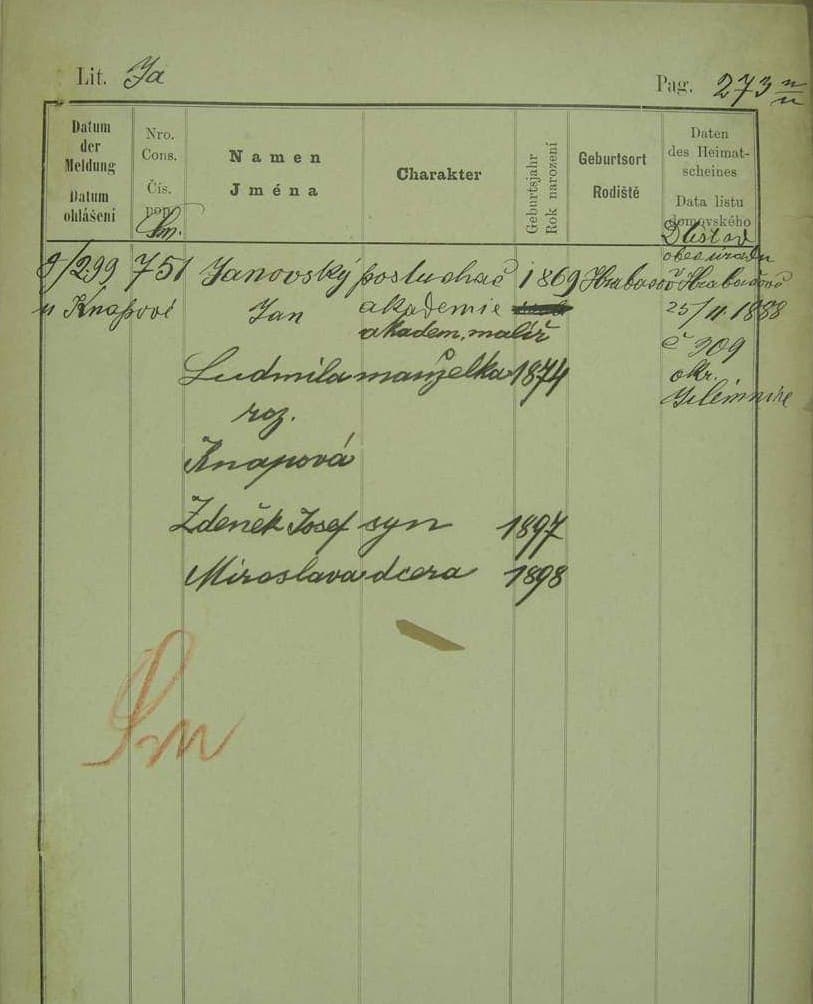 Lit. Ja
Pag. 273
Datum der Meldung
Datum ohlášení
Nro. Cons.
Čís. pop.
Sm.
Namen
Jména
Charakter
Geburtsjahr
Rok narození
Geburtsort
Rodiště
Daten des Heimat-scheines
Data listu domovského
9/2 99 751 Janovský posluchač 1869 Hrabačov
u Knapové Jan akademie
akadem. malíř
D list od
obec úřadu
v Hrabačově
25/11 1888
č 209
okr.
Jilemnice
Ludmila manželka 1874
roz.
Knapová
Zdeněk Josef syn 1897
Miroslava dcera 1898
Sm